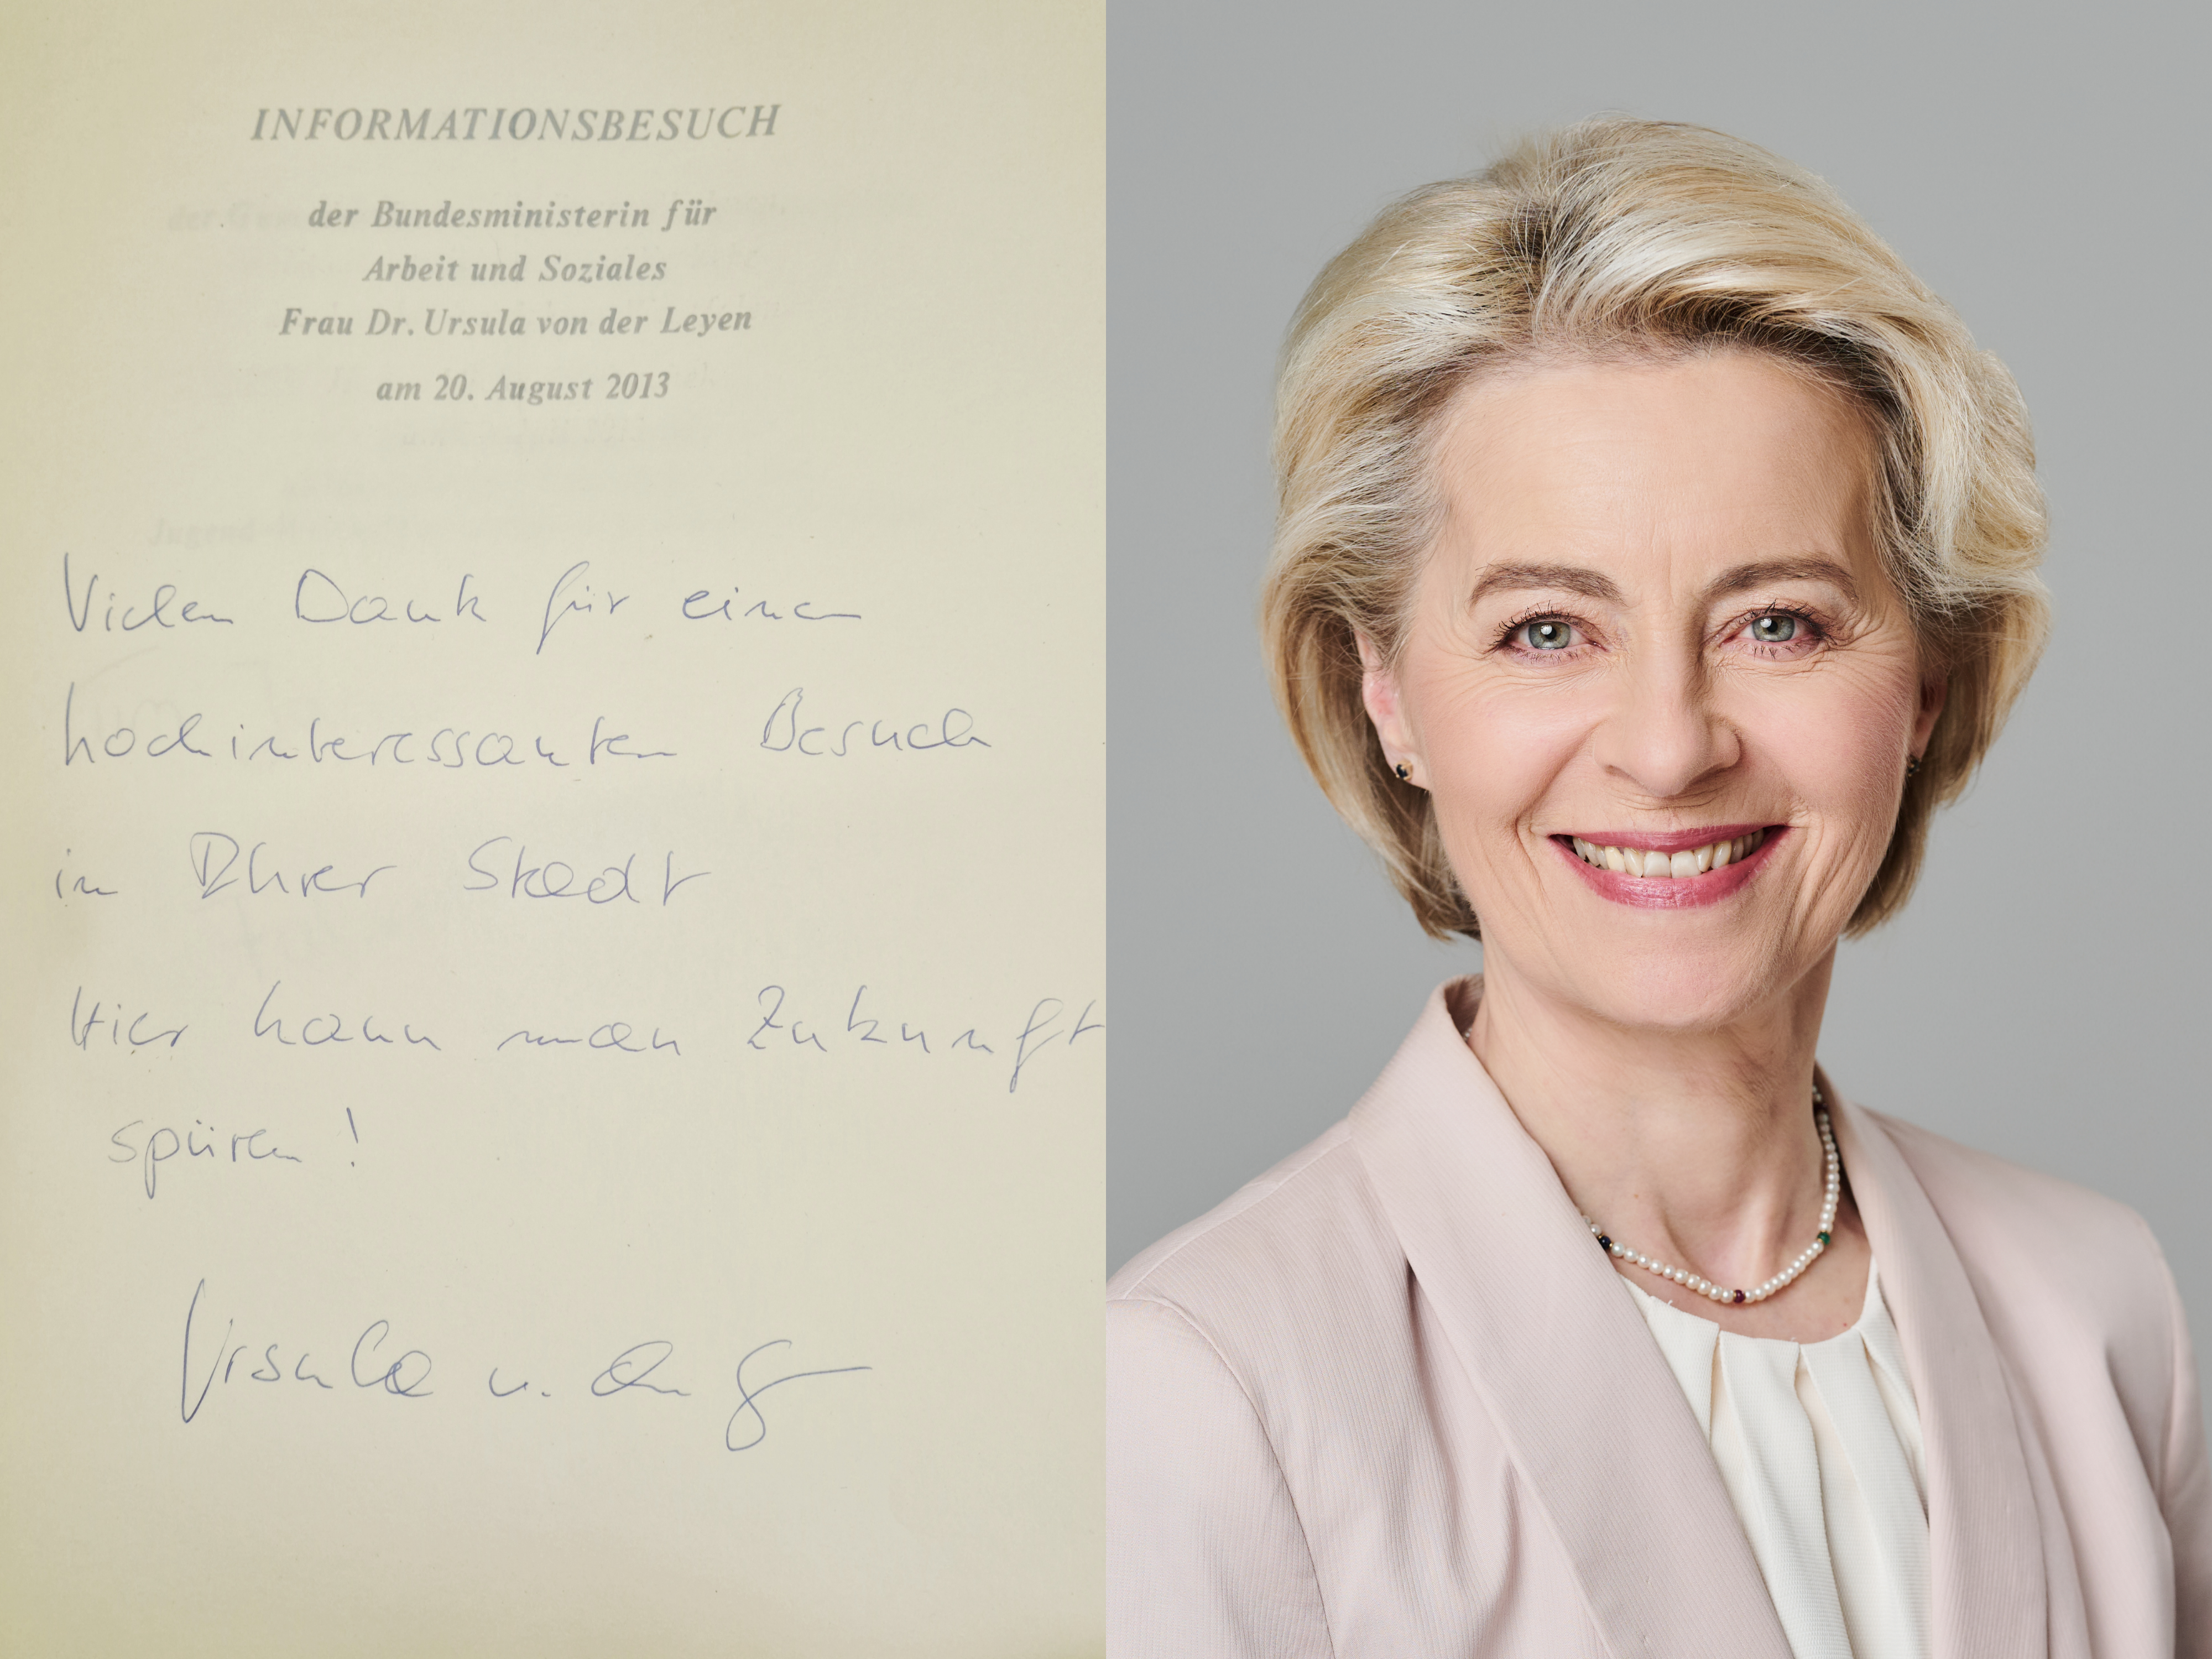 INFORMATIONSBESUCH
der Bundesministerin für
Arbeit und Soziales
Frau Dr. Ursula von der Leyen
am 20. August 2013
Vielen Dank für einen
hochinteressanten Besuch
in Ihrer Stadt
Hier kann man Zukunft
spüren!
Ursula v. d.